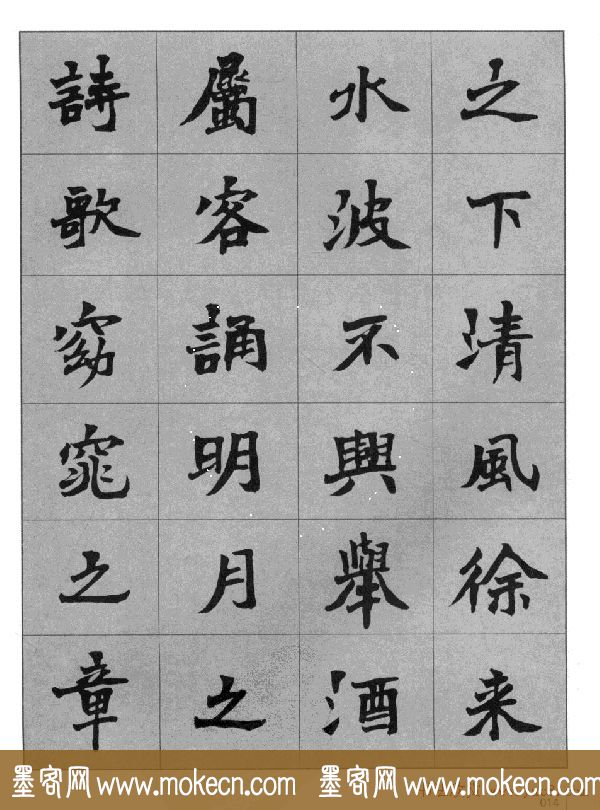 之下清風徐来
水波不興舉酒
屬客誦明月之
詩歌窈窕之章
墨客网 www.mokecn.com 墨客网 www.mokecn.com
014